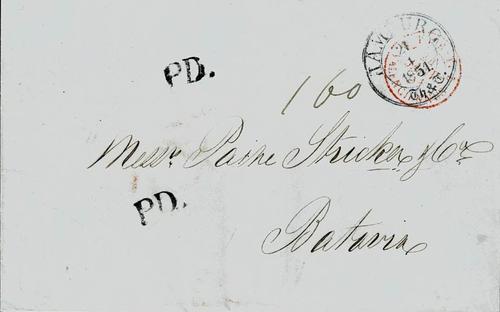 PD.
HAMBURG
51
160
Messrs Paine Stricker & Co.
PD.
Batavia